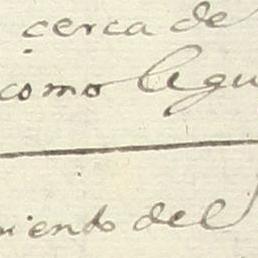 cerca de
como legu
miento del